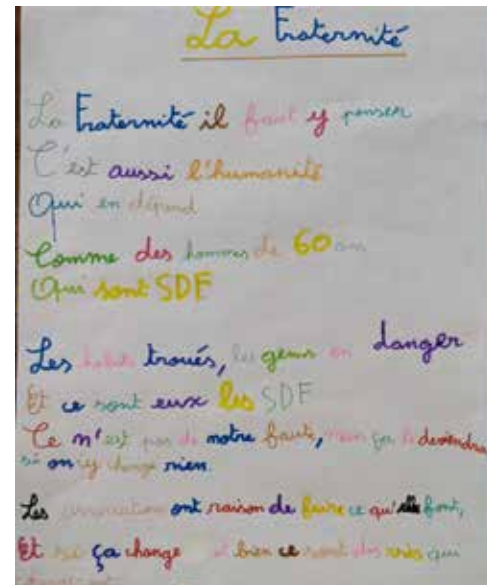 La Fraternité
La Fraternité il faut y penser
C'est aussi l'humanité
Qui en dépend
Comme des hommes de 60 ans
Qui sont SDF
Les habits troués, les gens en danger
Et ce sont eux les SDF
Ce n'est pas de notre faute, mais ça le deviendra
si on y change rien.
Les association ont raison de faire ce qu'elle font,
Et si ça change et bien ce sont des vies qui